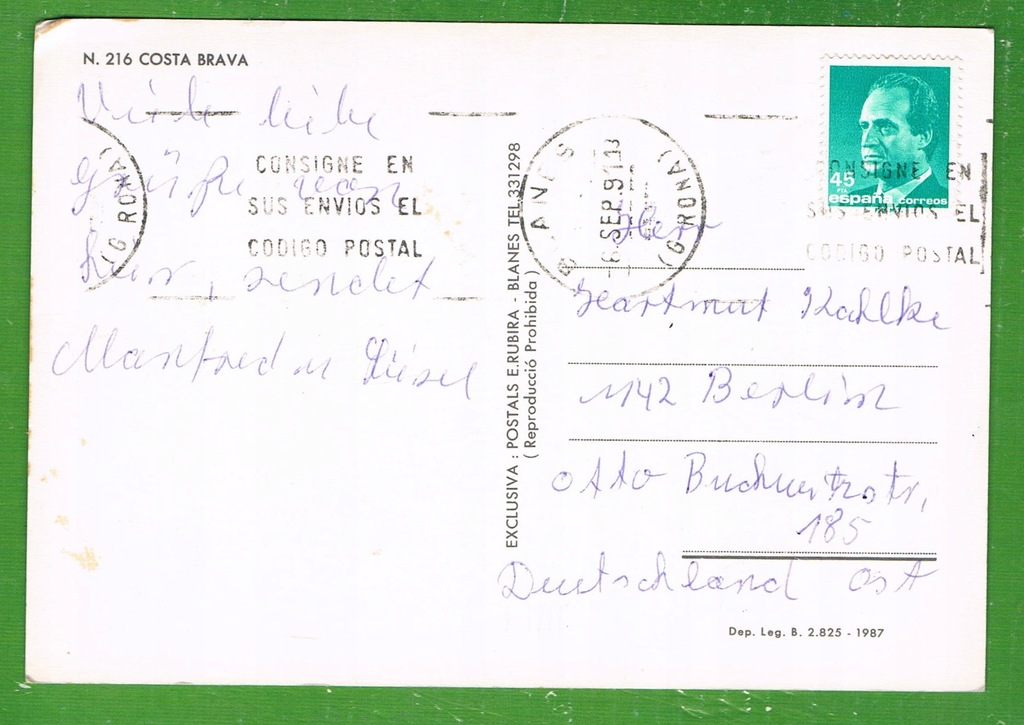 N. 216 COSTA BRAVA
Viele liebe
Grüße von
hier, sendet
Manfred u Liesel
CONSIGNE EN
SUS ENVIOS EL
CODIGO POSTAL
(G RONA)
EXCLUSIVA : POSTALS E.RUBIRA - BLANES TEL.331298
( Reproducció Prohibida )
ANES
SEP.91
(G RONA)
45
PTA
españa correos
CONSIGNE EN
SUS ENVIOS EL
CODIGO POSTAL
Herr
Hartmut Kahlke
1142 Berlin
Otto Buchwitzstr,
185
Deutschland Ost
Dep. Leg. B. 2.825 - 1987